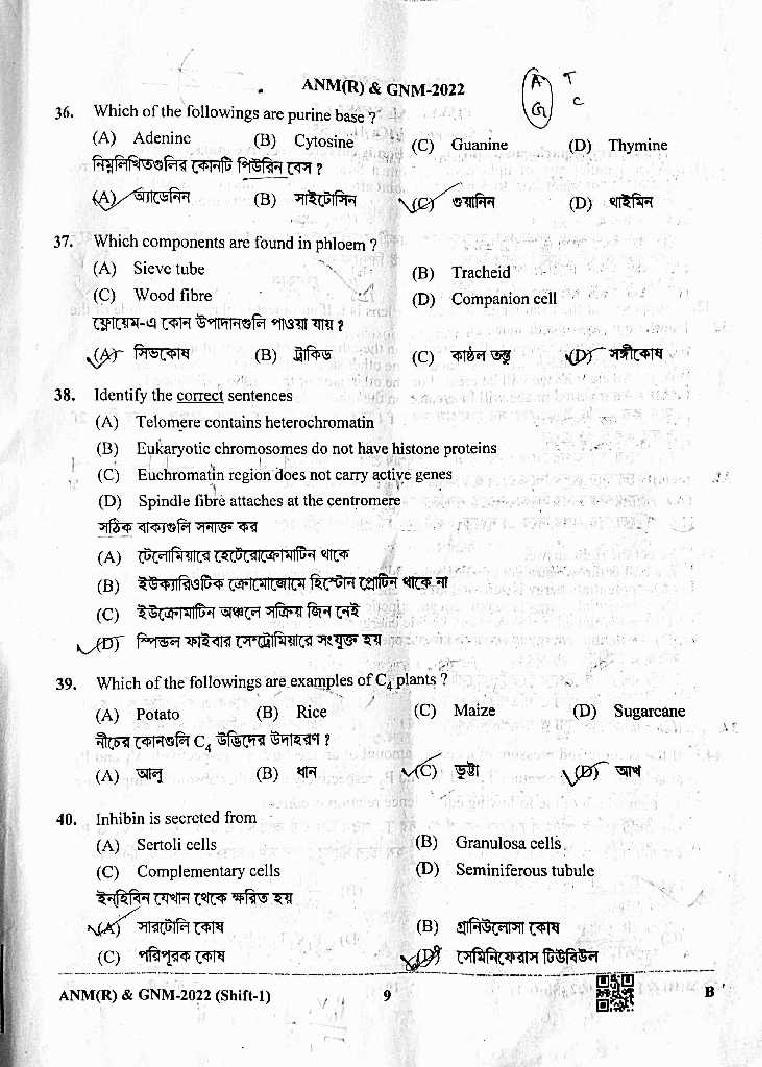 ANM(R) & GNM-2022
A T
G C
36. Which of the followings are purine base ?
(A) Adenine (B) Cytosine (C) Guanine (D) Thymine
নিম্নলিখিতগুলির কোনটি পিউরিন বেস ?
(A) অ্যাডেনিন (B) সাইটোসিন (C) গুয়ানিন (D) থাইমিন
37. Which components are found in phloem ?
(A) Sieve tube (B) Tracheid
(C) Wood fibre (D) Companion cell
ফ্লোয়েম-এ কোন উপাদানগুলি পাওয়া যায় ?
(A) সিভকোষ (B) ট্রাকিড (C) কাষ্ঠল তন্তু (D) সঙ্গীকোষ
38. Identify the correct sentences
(A) Telomere contains heterochromatin
(B) Eukaryotic chromosomes do not have histone proteins
(C) Euchromatin region does not carry active genes
(D) Spindle fibre attaches at the centromere
সঠিক বাক্যগুলি সনাক্ত কর
(A) টেলোমিয়ারে হেটেরোক্রোমাটিন থাকে
(B) ইউক্যারিওটিক ক্রোমোজোমে হিস্টোন প্রোটিন থাকে না
(C) ইউক্রোমাটিন অঞ্চলে সক্রিয় জিন নেই
(D) স্পিন্ডল ফাইবার সেন্ট্রোমিয়ারে সংযুক্ত হয়
39. Which of the followings are examples of C4 plants ?
(A) Potato (B) Rice (C) Maize (D) Sugarcane
নীচের কোনগুলি C4 উদ্ভিদের উদাহরণ ?
(A) আলু (B) ধান (C) ভুট্টা (D) আখ
40. Inhibin is secreted from
(A) Sertoli cells (B) Granulosa cells
(C) Complementary cells (D) Seminiferous tubule
ইনহিবিন যেখান থেকে ক্ষরিত হয়
(A) সারটোলি কোষ (B) গ্রানিউলোসা কোষ
(C) পরিপূরক কোষ (D) সেমিনিফেরাস টিউবিউল
ANM(R) & GNM-2022 (Shift-1) 9 B